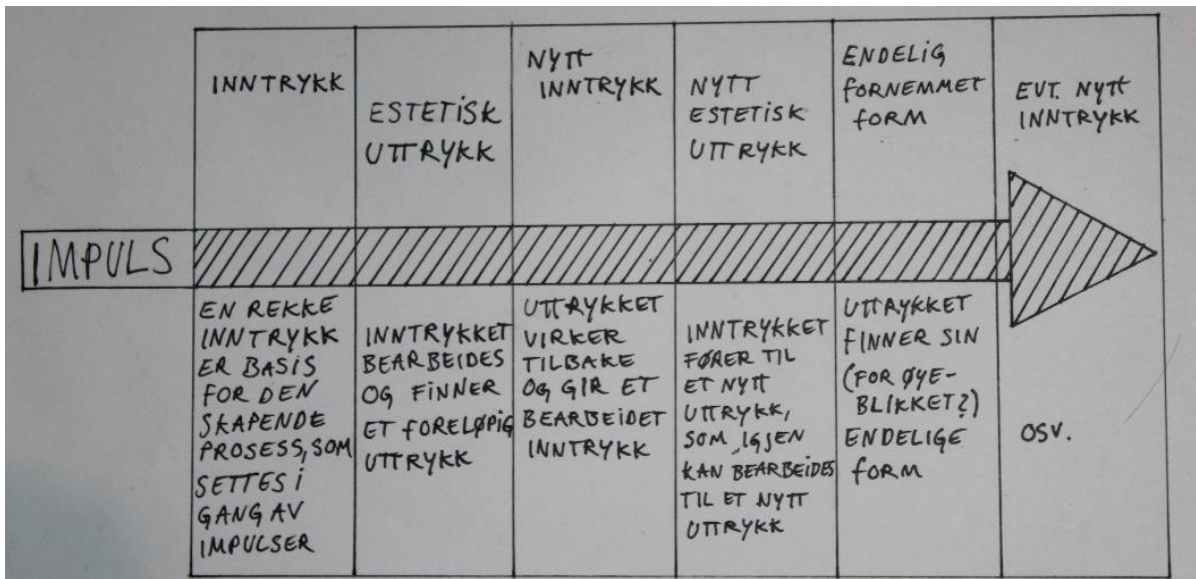 INNTRYKK
ESTETISK
UTTRYKK
NYTT
INNTRYKK
NYTT
ESTETISK
UTTRYKK
ENDELIG
FORNEMMET
FORM
EVT. NYTT
INNTRYKK
IMPULS
EN REKKE
INNTRYKK
ER BASIS
FOR DEN
SKAPENDE
PROSESS, SOM
SETTES I
GANG AV
IMPULSER
INNTRYKKET
BEARBEIDES
OG FINNER
ET FORELØPIG
UTTRYKK
UTTRYKKET
VIRKER
TILBAKE
OG GIR ET
BEARBEIDET
INNTRYKK
INNTRYKKET
FØRER TIL
ET NYTT
UTTRYKK,
SOM IGJEN
KAN BEARBEIDES
TIL ET NYTT
UTTRYKK
UTTRYKKET
FINNER SIN
(FOR ØYE-
BLIKKET?)
ENDELIGE
FORM
OSV.